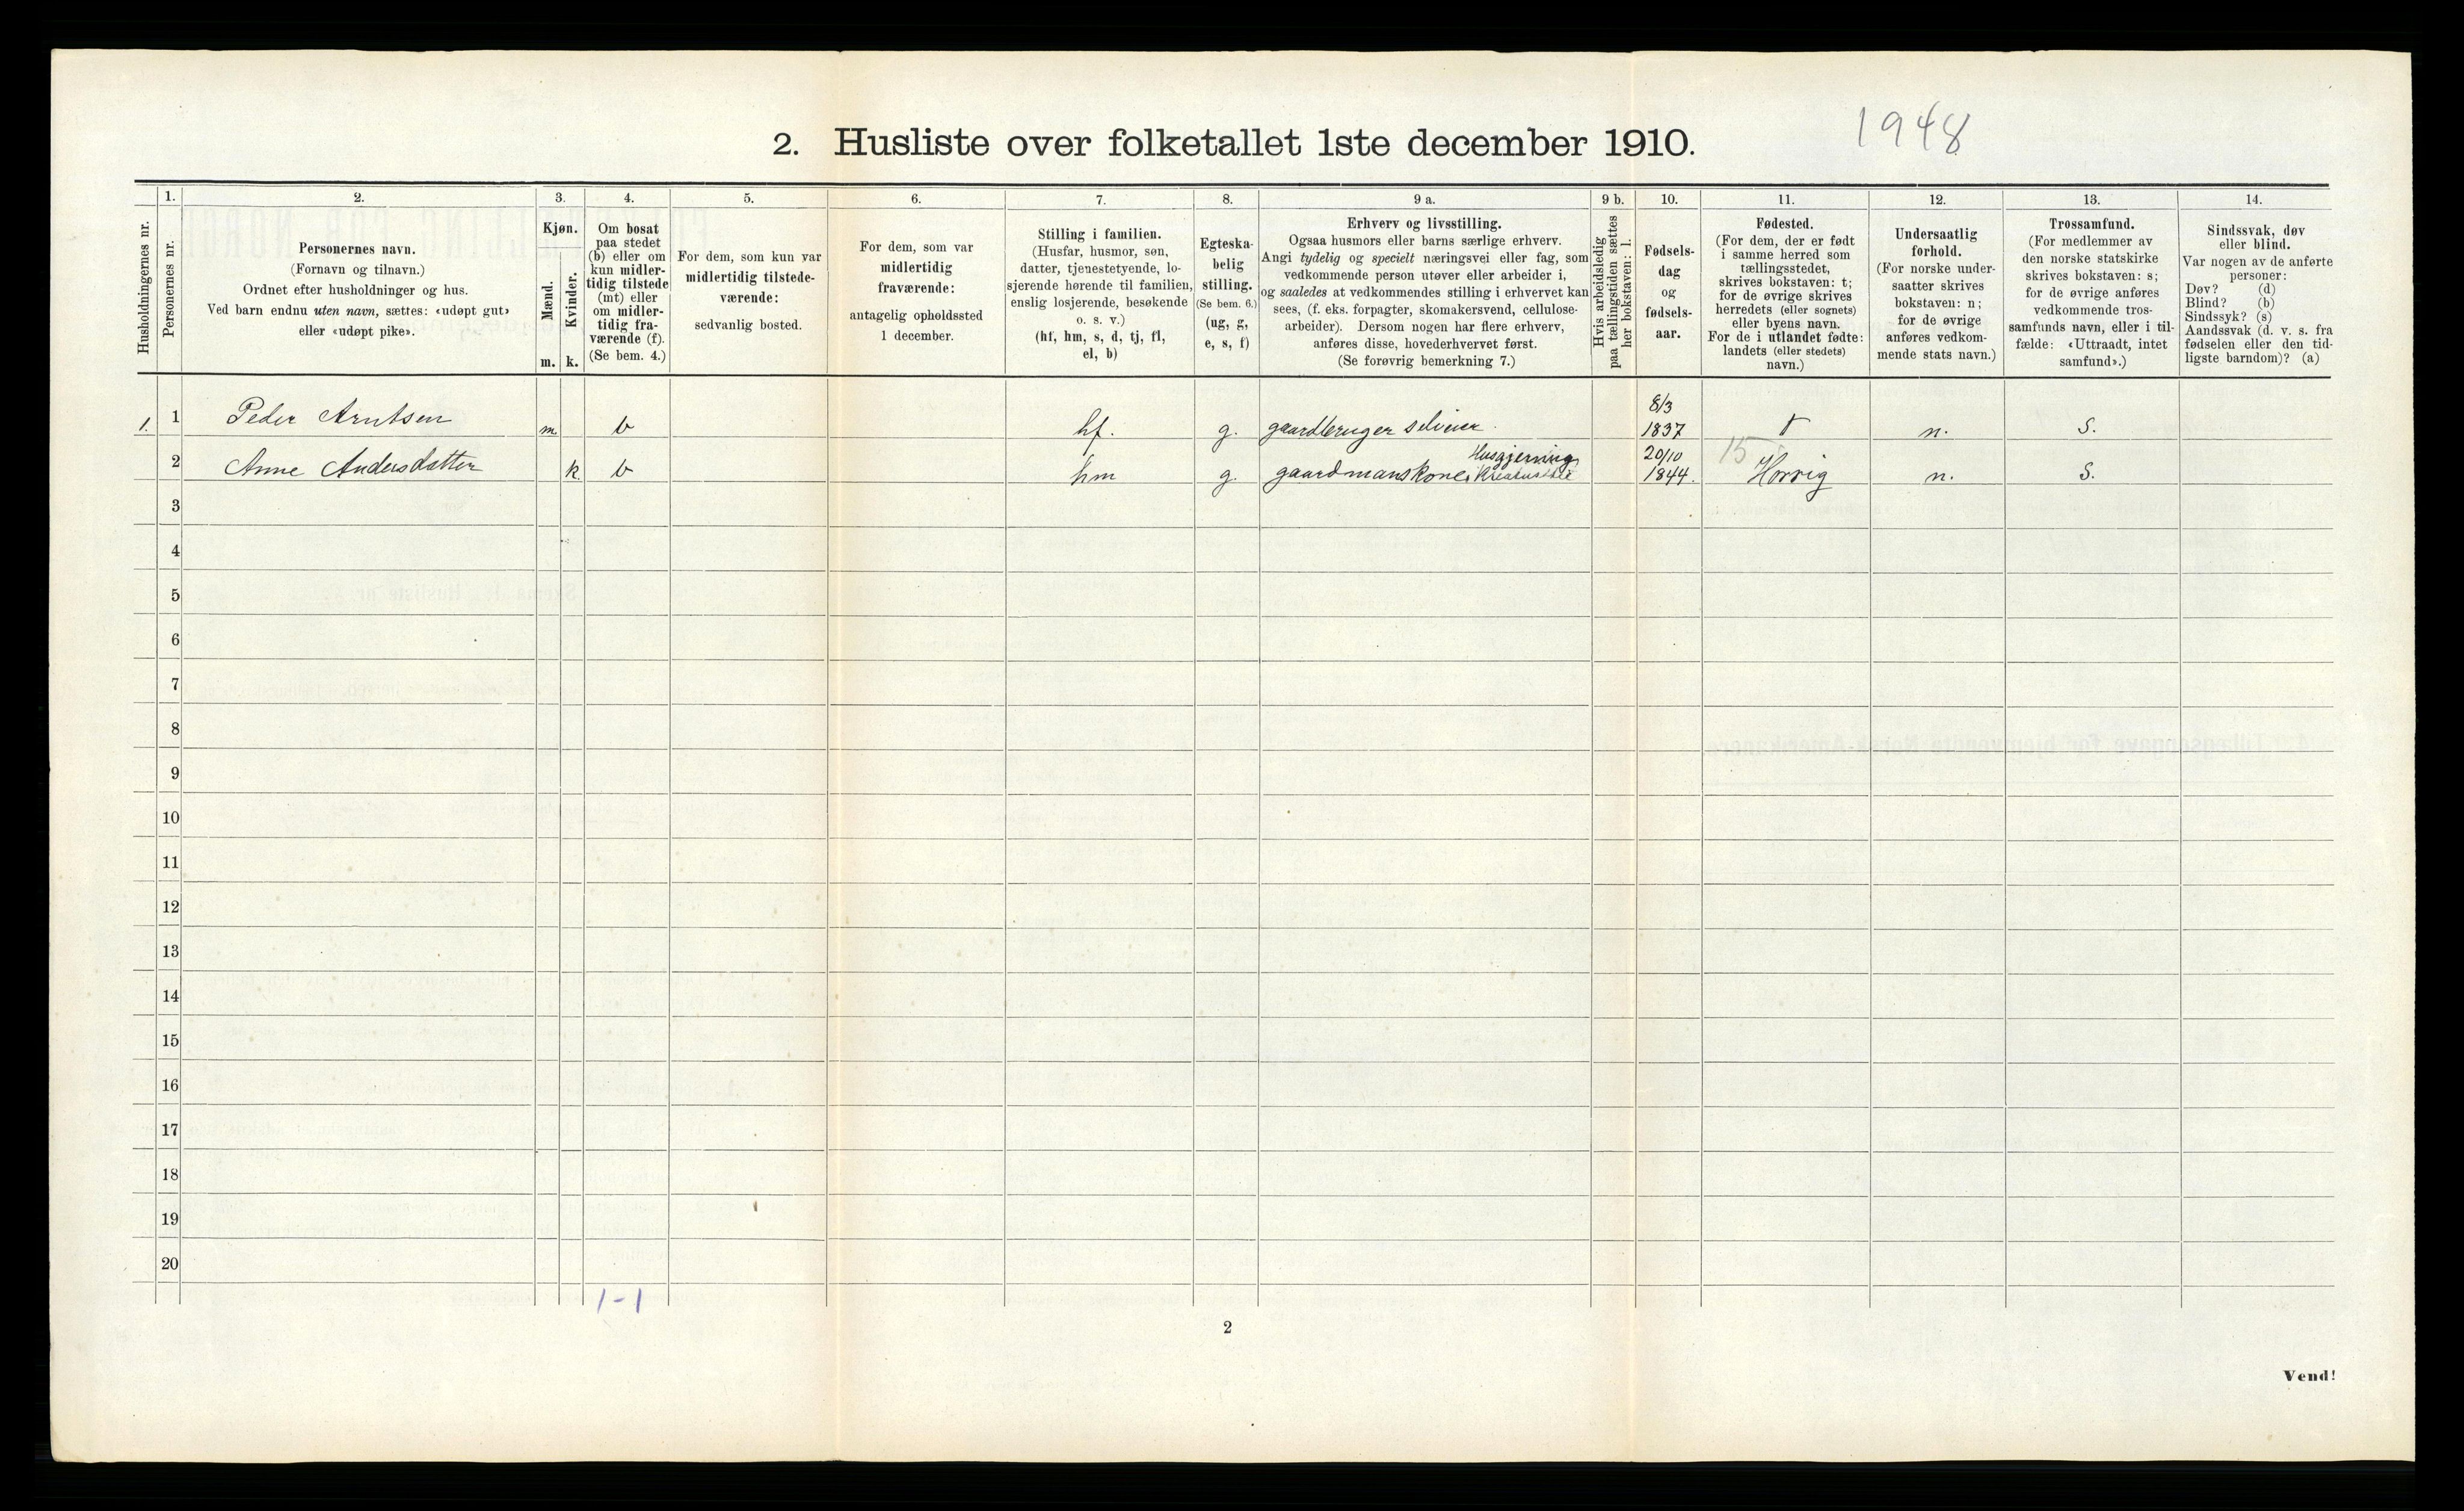 1948
2. Husliste over folketallet 1ste december 1910.
Husholdningernes nr.
1.
Personernes nr.
2.
Personernes navn.
(Fornavn og tilnavn.)
Ordnet efter husholdninger og hus.
Ved barn endnu uten navn, sættes: «udøpt gut»
eller «udøpt pike».
3.
Kjøn.
Mænd.
Kvinder.
m. k.
4.
Om bosat
paa stedet
(b) eller om
kun midler-
tidig tilstede
(mt) eller
om midler-
tidig fra-
værende (f).
(Se bem. 4.)
5.
For dem, som kun var
midlertidig tilstede-
værende:
sedvanlig bosted.
6.
For dem, som var
midlertidig
fraværende:
antagelig opholdssted
1 december.
7.
Stilling i familien.
(Husfar, husmor, søn,
datter, tjenestetyende, lo-
sjerende hørende til familien,
enslig losjerende, besøkende
o. s. v.)
(hf, hm, s, d, tj, fl,
el, b)
8.
Egteska-
belig
stilling.
(Se bem. 6.)
(ug, g,
e, s, f)
9 a.
Erhverv og livsstilling.
Ogsaa husmors eller barns særlige erhverv.
Angi tydelig og specielt næringsvei eller fag, som
vedkommende person utøver eller arbeider i,
og saaledes at vedkommendes stilling i erhvervet kan
sees, (f. eks. forpagter, skomakersvend, cellulose-
arbeider). Dersom nogen har flere erhverv,
anføres disse, hovederhvervet først.
(Se forøvrig bemerkning 7.)
9 b.
Hvis arbeidsledig
paa tællingstiden sættes
her bokstaven: l.
10.
Fødsels-
dag
og
fødsels-
aar.
11.
Fødested.
(For dem, der er født
i samme herred som
tællingsstedet,
skrives bokstaven: t;
for de øvrige skrives
herredets (eller sognets)
eller byens navn.
For de i utlandet fødte:
landets (eller stedets)
navn.)
12.
Undersaatlig
forhold.
(For norske under-
saatter skrives
bokstaven: n;
for de øvrige
anføres vedkom-
mende stats navn.)
13.
Trossamfund.
(For medlemmer av
den norske statskirke
skrives bokstaven: s;
for de øvrige anføres
vedkommende tros-
samfunds navn, eller i til-
fælde: «Uttraadt, intet
samfund».)
14.
Sindssvak, døv
eller blind.
Var nogen av de anførte
personer:
Døv? (d)
Blind? (b)
Sindssyk? (s)
Aandssvak (d. v. s. fra
fødselen eller den tid-
ligste barndom)? (a)
1. 1 Peder Arntsen m b hf. g. gaardbruger selveier. 8/3 1837 t n. s.
2 Anne Andersdatter k. b hm g. gaardmanskone Husgjerning 20/10 1844. 15 n. s.
3
4
5
6
7
8
9
10
11
12
13
14
15
16
17
18
19
20
1-1
2
Vend!